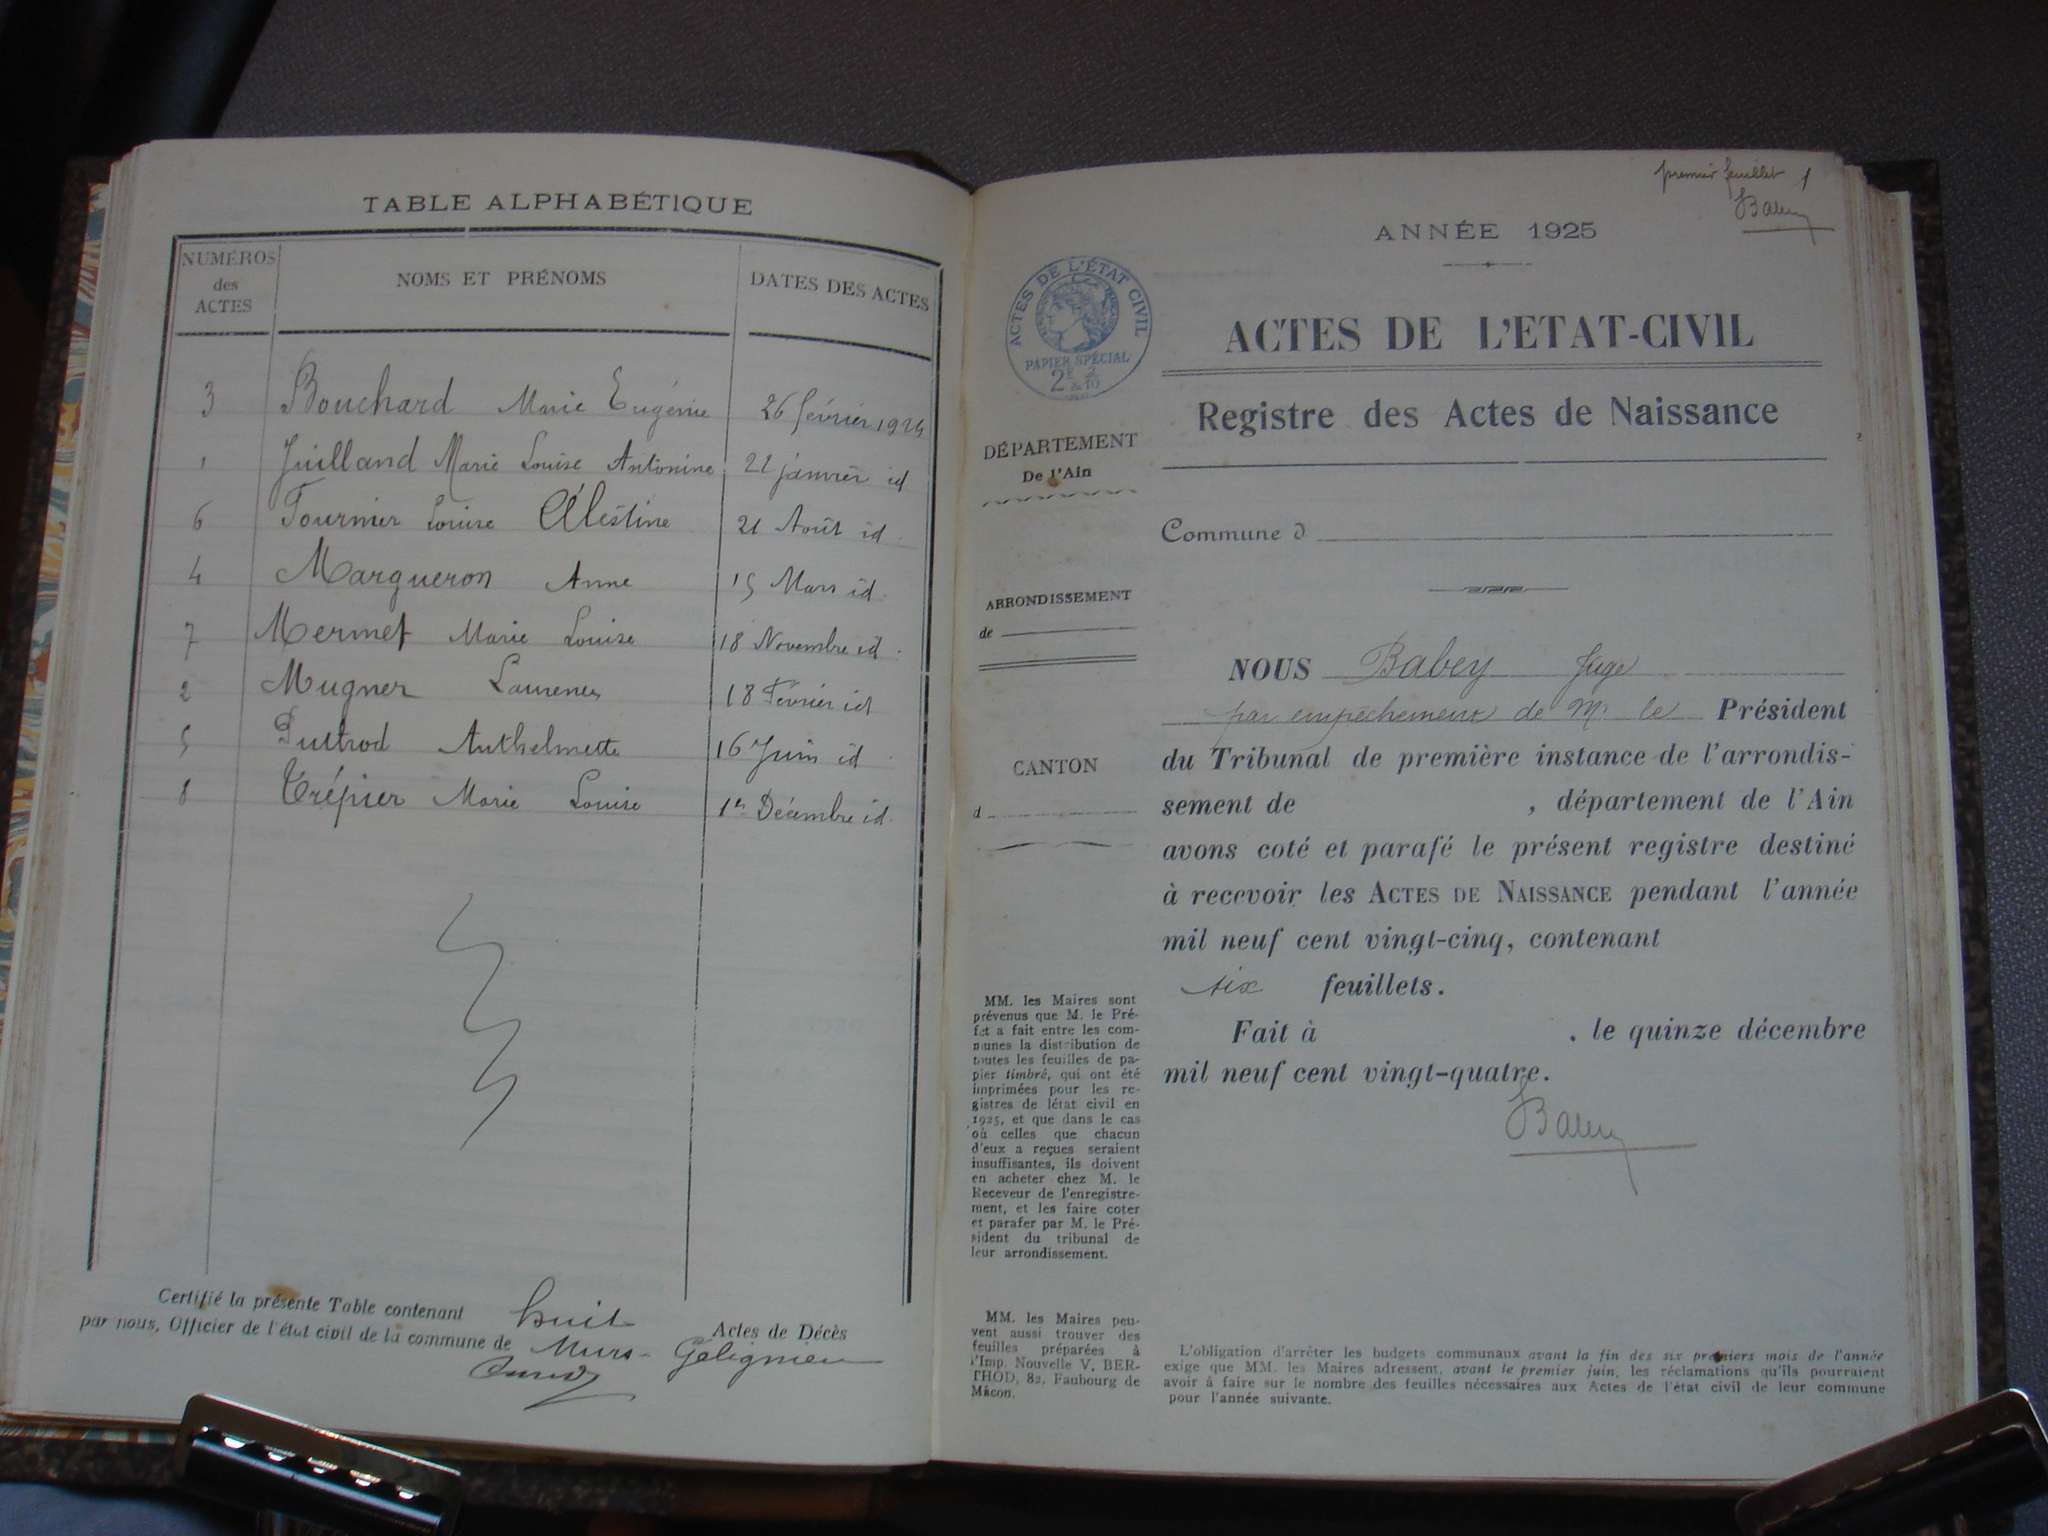 TABLE ALPHABÉTIQUE
NUMÉROS
des
ACTES
NOMS ET PRÉNOMS
DATES DES ACTES
3 Bouchard Marie Eugénie 26 février 1924
1 Juilland Marie Louise Antonine 21 janvier id
6 Fournier Louise Célestine 21 Août id
4 Margueron Anne 15 Mars id
7 Mermet Marie Louise 18 Novembre id
2 Mugner 18 Février id
5 Anthelmette 16 Juin id
8 Trépier Marie Louise 1er Décembre id
Certifié la présente Table contenant huit Actes de Décès
par nous, Officier de l'état civil de la commune de Murs-Gelignieu
premier feuillet 1
Babey
ANNÉE 1925
ACTES DE L'ÉTAT CIVIL
PAPIER SPÉCIAL
2F & 2/10
ACTES DE L'ETAT-CIVIL
Registre des Actes de Naissance
DÉPARTEMENT
De l'Ain
Commune d
ARRONDISSEMENT
de
CANTON
d
NOUS Babey Juge
par empêchement de Mr le Président
du Tribunal de première instance de l'arrondis-
sement de , département de l'Ain
avons coté et parafé le présent registre destiné
à recevoir les ACTES DE NAISSANCE pendant l'année
mil neuf cent vingt-cinq, contenant
six feuillets.
Fait à , le quinze décembre
mil neuf cent vingt-quatre.
Babey
MM. les Maires sont
prévenus que M. le Pré-
fet a fait entre les com-
munes la distribution de
toutes les feuilles de pa-
pier timbré, qui ont été
imprimées pour les re-
gistres de létat civil en
1925, et que dans le cas
où celles que chacun
d'eux a reçues seraient
insuffisantes, ils doivent
en acheter chez M. le
Receveur de l'enregistre-
ment, et les faire coter
et parafer par M. le Pré-
sident du tribunal de
leur arrondissement.
MM. les Maires peu-
vent aussi trouver des
feuilles préparées à
l'Imp. Nouvelle V. BER-
THOD, 82, Faubourg de
Mâcon.
L'obligation d'arrêter les budgets communaux avant la fin des six premiers mois de l'année
exige que MM. les Maires adressent, avant le premier juin, les réclamations qu'ils pourraient
avoir à faire sur le nombre des feuilles nécessaires aux Actes de l'état civil de leur commune
pour l'année suivante.